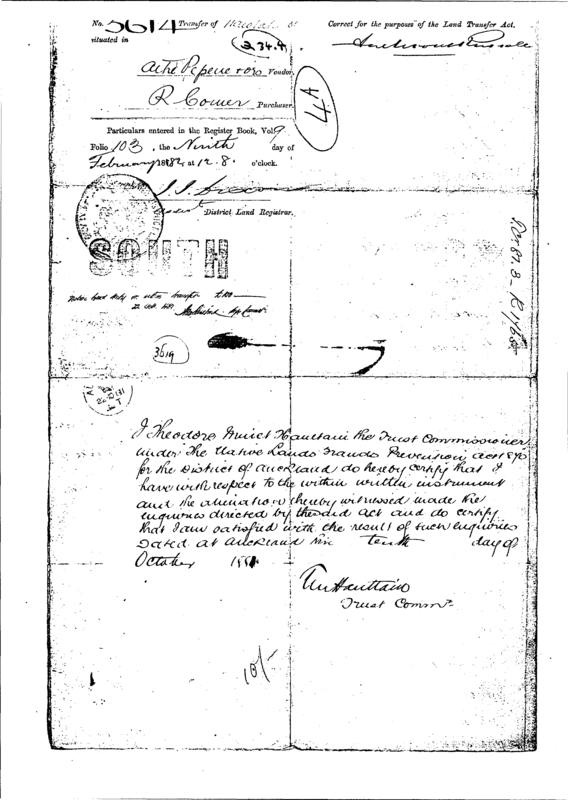 No. 5614 Transfer of
Correct for the purposes of the Land Transfer Act.
situated in
234.4
Vendor
R Comer Purchaser.
4A
Particulars entered in the Register Book, Vol. 9
Folio 103, the Ninth day of
February 1882, at 12.8. o'clock.
District Land Registrar.
SOUTH
Native Land duty on within transfer
3619
I Theodore Minet Haultain the Trust Commissioner
under The Native Lands Frauds Prevention act 1870
for the District of Auckland do hereby certify that I
have with respect to the within written instrument
and the alienation thereby witnessed made the
enquiries directed by the said act and do certify
that I am satisfied with the result of such enquiries
Dated at Auckland this tenth day of
October 1881
TM Haultain
Trust Commr.
10/-